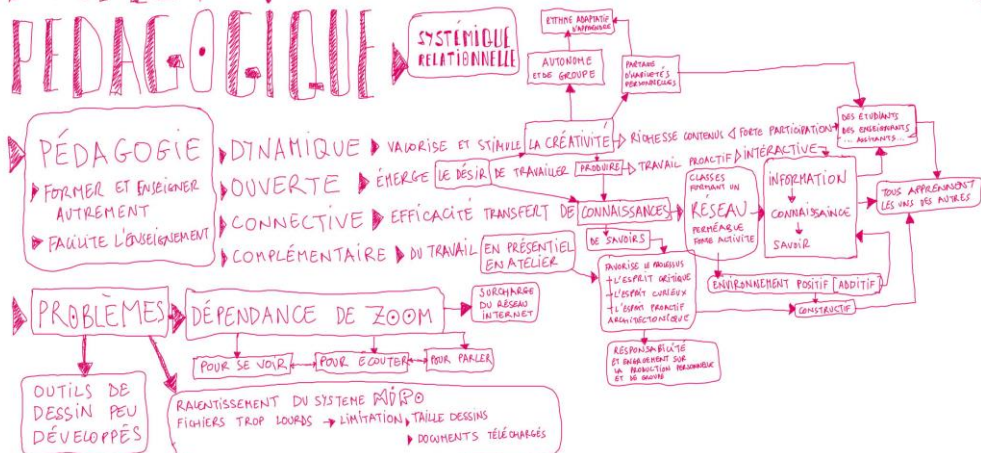 PEDAGOGIQUE
SYSTÉMIQUE
RELATIONNELLE
RYTHME ADAPTATIF
D'APPRENDRE
AUTONOME
ET DE GROUPE
PARTAGE
D'HABILETÉS
PERSONNELLES
PÉDAGOGIE
FORMER ET ENSEIGNER
AUTREMENT
FACILITE L'ENSEIGNEMENT
DYNAMIQUE VALORISE ET STIMULE LA CRÉATIVITÉ RICHESSE CONTENUS FORTE PARTICIPATION
DES ÉTUDIANTS
DES ENSEIGNANTS
... ASSISTANTS...
OUVERTE ÉMERGE LE DÉSIR DE TRAVAILLER PRODUIRE TRAVAIL PROACTIF INTERACTIVE
CONNECTIVE EFFICACITÉ TRANSFERT DE CONNAISSANCES
DE SAVOIRS
COMPLÉMENTAIRE DU TRAVAIL EN PRÉSENTIEL
EN ATELIER
CLASSES
FORMANT UN
RÉSEAU
PERMÉABLE
FORME ACTIVITÉ
INFORMATION
CONNAISSAINCE
SAVOIR
TOUS APPRENNENT
LES UNS DES AUTRES
FAVORISE LE PROCESSUS
L'ESPRIT CRITIQUE
L'ESPRIT CURIEUX
L'ESPRIT PROACTIF
ARCHITECTONIQUE
ENVIRONNEMENT POSITIF ADDITIF
CONSTRUCTIF
RESPONSABILITÉ
SUR
LA PRODUCTION PERSONNELLE
ET DE GROUPE
PROBLÈMES DÉPENDANCE DE ZOOM
SURCHARGE
DU RÉSEAU
INTERNET
POUR SE VOIR POUR ÉCOUTER POUR PARLER
OUTILS DE
DESSIN PEU
DÉVELOPPÉS
RALENTISSEMENT DU SYSTEME MIRO
FICHIERS TROP LOURDS → LIMITATION TAILLE DESSINS
DOCUMENTS TÉLÉCHARGÉS